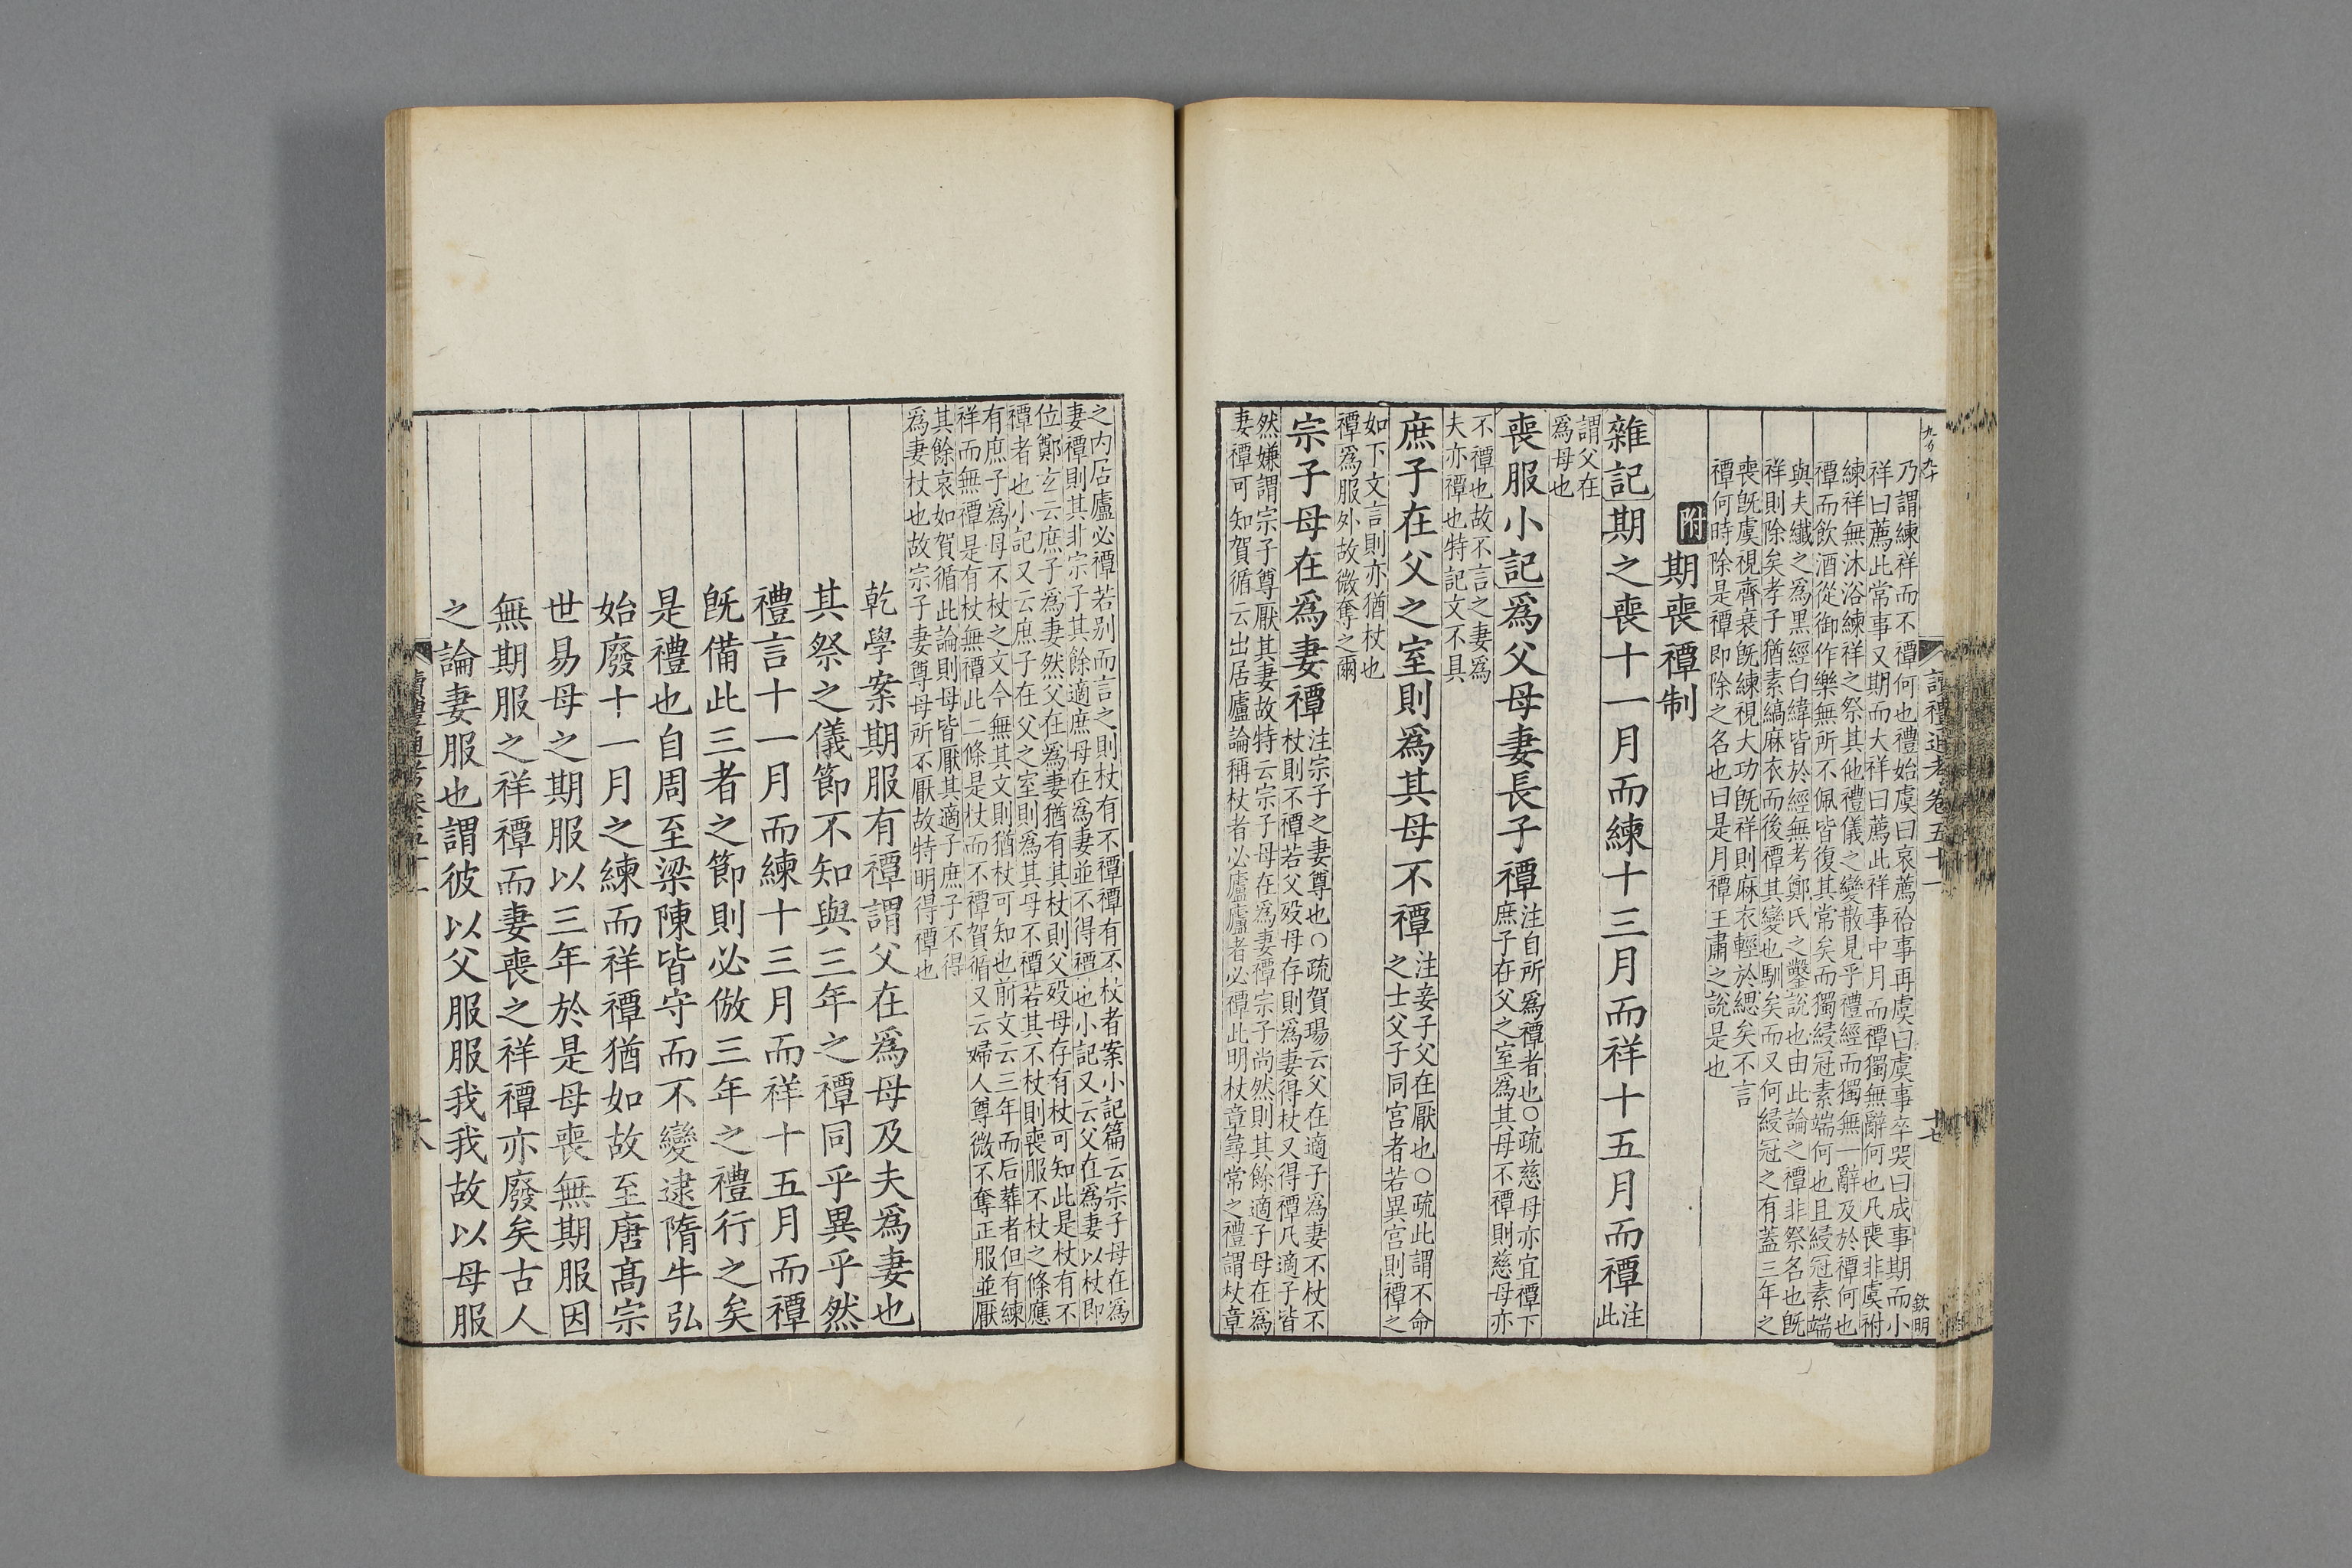 九百九十
讀禮通考卷五十一
十七
欽明
乃謂練祥而不禫何也禮始虞曰哀薦祫事再虞曰虞事卒哭曰成事期而小
祥曰薦此常事又期而大祥曰薦此祥事中月而禫獨無辭何也凡喪非虞祔
練祥無沐浴練祥之祭其他禮儀之變散見乎禮經而獨無一辭及於禫何也
禫而飲酒從御作樂無所不佩皆復其常矣而獨綅冠素端何也且綅冠素端
與夫纖之爲黑經白緯皆於經無考鄭氏之鑿說也由此論之禫非祭名也旣
祥則除矣孝子猶素縞麻衣而後禫其變也馴矣而又何綅冠之有蓋三年之
喪旣虞視齊衰旣練視大功旣祥則麻衣輕於緦矣不言
禫何時除是禫即除之名也曰是月禫王肅之說是也
附期喪禫制
雜記期之喪十一月而練十三月而祥十五月而禫注此
謂父在
爲母也
喪服小記爲父母妻長子禫注自所爲禫者也○疏慈母亦宜禫下
庶子在父之室爲其母不禫則慈母亦
不禫也故不言之妻爲
夫亦禫也特記文不具
庶子在父之室則爲其母不禫注妾子父在厭也○疏此謂不命
之士父子同宮者若異宮則禫之
如下文言則亦猶杖也
禫爲服外故微奪之爾
宗子母在爲妻禫注宗子之妻尊也○疏賀瑒云父在適子爲妻不杖不
杖則不禫若父歿母存則爲妻得杖又得禫凡適子皆
然嫌謂宗子尊厭其妻故特云宗子母在爲妻禫宗子尚然則其餘適子母在爲
妻禫可知賀循云出居廬論稱杖者必廬廬者必禫此明杖章尋常之禮謂杖章
之內居廬必禫若別而言之則杖有不禫禫有不杖者案小記篇云宗子母在爲
妻禫則其非宗子其餘適庶母在爲妻並不得禫也小記又云父在爲妻以杖即
位鄭玄云庶子爲妻然父在爲妻猶有其杖則父歿母存有杖可知此是杖有不
禫者也小記又云庶子在父之室則爲其母不禫若其不杖則喪服不杖之條應
有庶子爲母不杖之文今無其文則猶杖可知也前文云三年而后葬者但有練
祥而無禫是有杖無禫此二條是杖而不禫賀循又云婦人尊微不奪正服並厭
其餘哀如賀循此論則母皆厭其適子庶子不得
爲妻杖也故宗子妻尊母所不厭故特明得禫也
乾學案期服有禫謂父在爲母及夫爲妻也
其祭之儀節不知與三年之禫同乎異乎然
禮言十一月而練十三月而祥十五月而禫
旣備此三者之節則必倣三年之禮行之矣
是禮也自周至梁陳皆守而不變逮隋牛弘
始廢十一月之練而祥禫猶如故至唐高宗
世易母之期服以三年於是母喪無期服因
無期服之祥禫而妻喪之祥禫亦廢矣古人
之論妻服也謂彼以父服服我我故以母服
讀禮通考卷五十一
十八